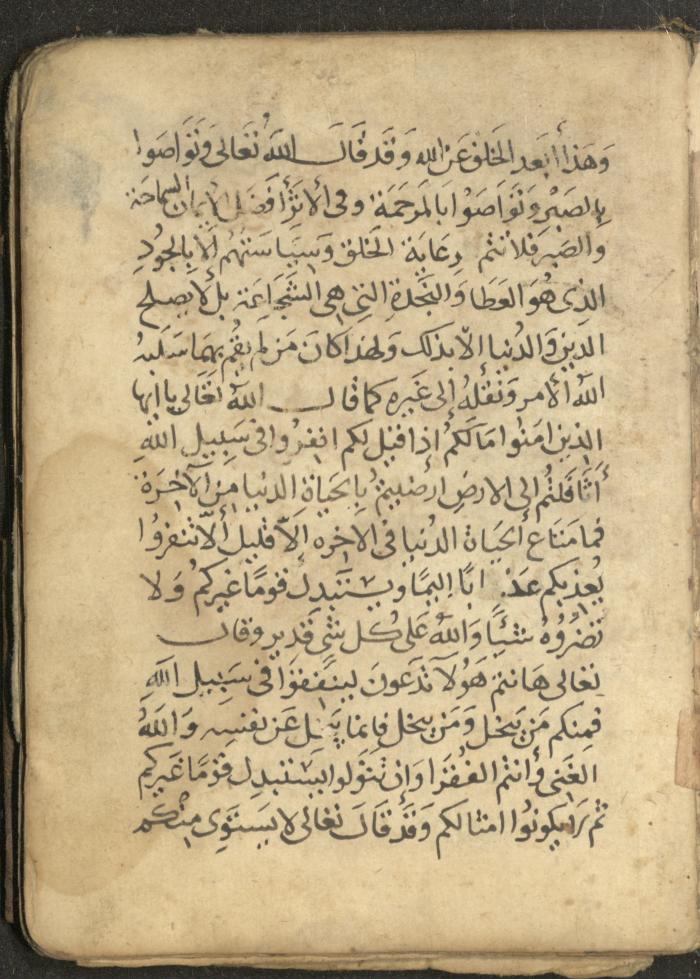 وَهَذا أبَعد الخَلق عَن الله وَقَد قَالَ اللهُ تَعَالى وَتَوَاصَوا
بِالصَبْرِ وَتَوَاصَوْا بِالمَرحَمَة وفى الأثَرْ أفضَل الإيمان السماحَة
والصَبر فلا تتم رِعَاية الخلق وَسيَاسَتهُم إلّا بالجُودِ
الذِى هُوَ العَطَا وَالنجْدَة التِى هِى الشَجَاعَة بل لا يصلح
الدين وَالدُنيا إلّا بذلك ولهذا كانَ مَن لم يقُم بهما سَلبَهُ
اللهُ الأمر وَنقلهُ إلى غَيره كما قال اللهُ تعَالى يا ايها
الذين امَنُوا مَالكُم إذا قيل لكم انفِرُوا فى سَبيل اللهِ
أثَّاقَلتُم إلى الارضِ ارَضيتمْ بِالحيَاة الدنيا مِنَ الآخِرَة
فما مَتَاع الحيَاة الدُنيا فى الاخره إلّا قليل ألّا تنفرُوا
يُعذبكم عَذَابًا اليمًا ويستَبدِل قومًا غيركُم وَلا
تَضُرُوُهُ شيئًا وَاللهُ عَلى كُل شئ قَدير وقال
تعالى هَا نتم هَولآ تدعَونَ لينُفقوَا فى سَبيل اللهِ
فمنكم مَن يَبخل وَمَن يبخل فإنما يَبخل عَن نفسِه وَاللهُ
الغَنى وأنتم الفُقرَا وَان تتَوَلوا يَستَبدِل قومًا غيركم
ثم لا يكونُوا امثالكم وَقَدْ قَالَ تعَالى لا يَستَوِى مِنْكُم